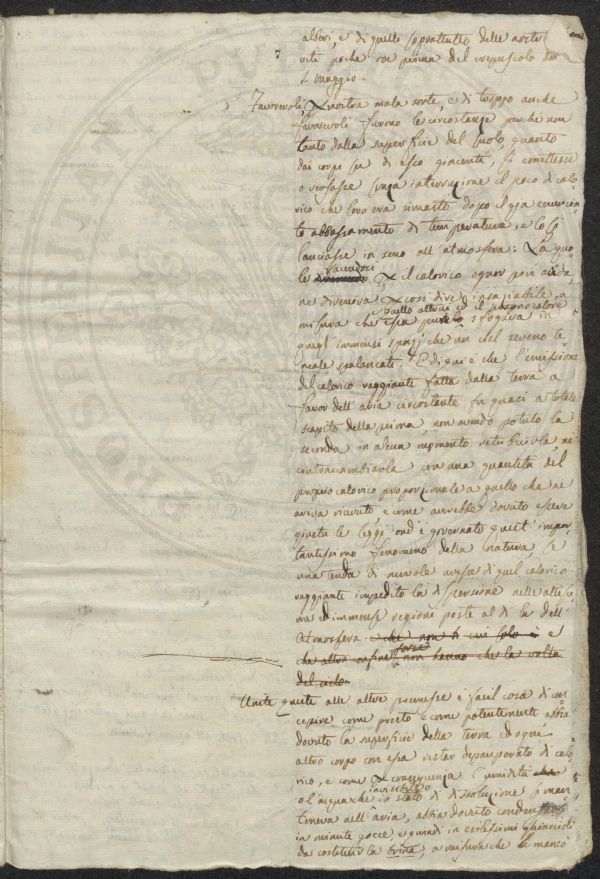 alberi, e di quelle soprattutto delle notti
7
vite poche ore prima del crepuscolo dei
5 maggio.
Favorevoli, nostra mala sorte, e di troppo anche
favorevoli furono le circostanze perché non
tanto dalla superficie del suolo, quanto
dai corpi su di esso giacenti, si emettesse
o versasse senza interruzione il poco di calo-
rico che loro era rimasto dopo il già enuncia-
to abbassamento di temperatura, e lo si
lanciasse in seno all'atmosfera. La qua-
le facendosi il calorico ognor più
ne diveniva così insaziabile, a
quello altrui ed il proprio calore
misura che essa pure lo sfogava in
quegl'immensi spazj che un ciel sereno te-
neale spalancati. E di qui è che l'emissione
del calorico raggiante fatta dalla terra a
favor dell'aria circostante fu quasi a totale
scapito della prima, non avendo potuto la
seconda in alcun momento retribuirla, né
contraccambiarla con una quantità del
proprio calorico proporzionale a quello che ne
aveva ricevuto e come avrebbe dovuto essere
giusta le leggi ond'è governato quest'impor-
tantissimo fenomeno della natura se
una tenda di nuvole avesse di quel calorico
raggiante impedito la dispersione nelle altissi-
me ed immense regioni poste al di là dell'
atmosfera. che non è
forse
che altro confine non hanno che la volta
del cielo.
Unite queste alle altre premesse è facil cosa di con-
cepire come presto e come potentemente abbia
dovuto la superficie della terra ed ogni
altro corpo con essa restar depauperato di calo-
rico, e come conseguenza l'umidità
invisibile
o l'acqua che in stato di dissoluzione si man-
teneva nell'aria, abbia dovuto
in minute gocce, e quindi in esilissimi ghiaccioli
da costituir la brina, a misura che le mancò